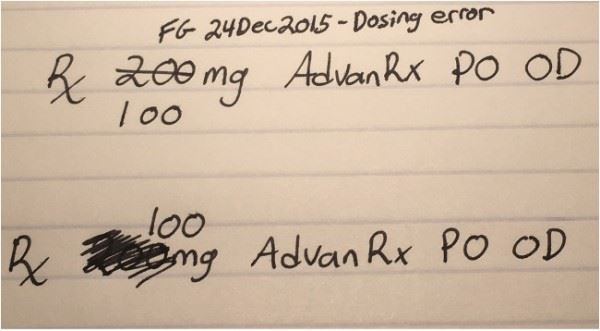 FG 24Dec2015 - Dosing error
Rx 200 mg AdvanRx PO OD
100
100
Rx mg AdvanRx PO OD